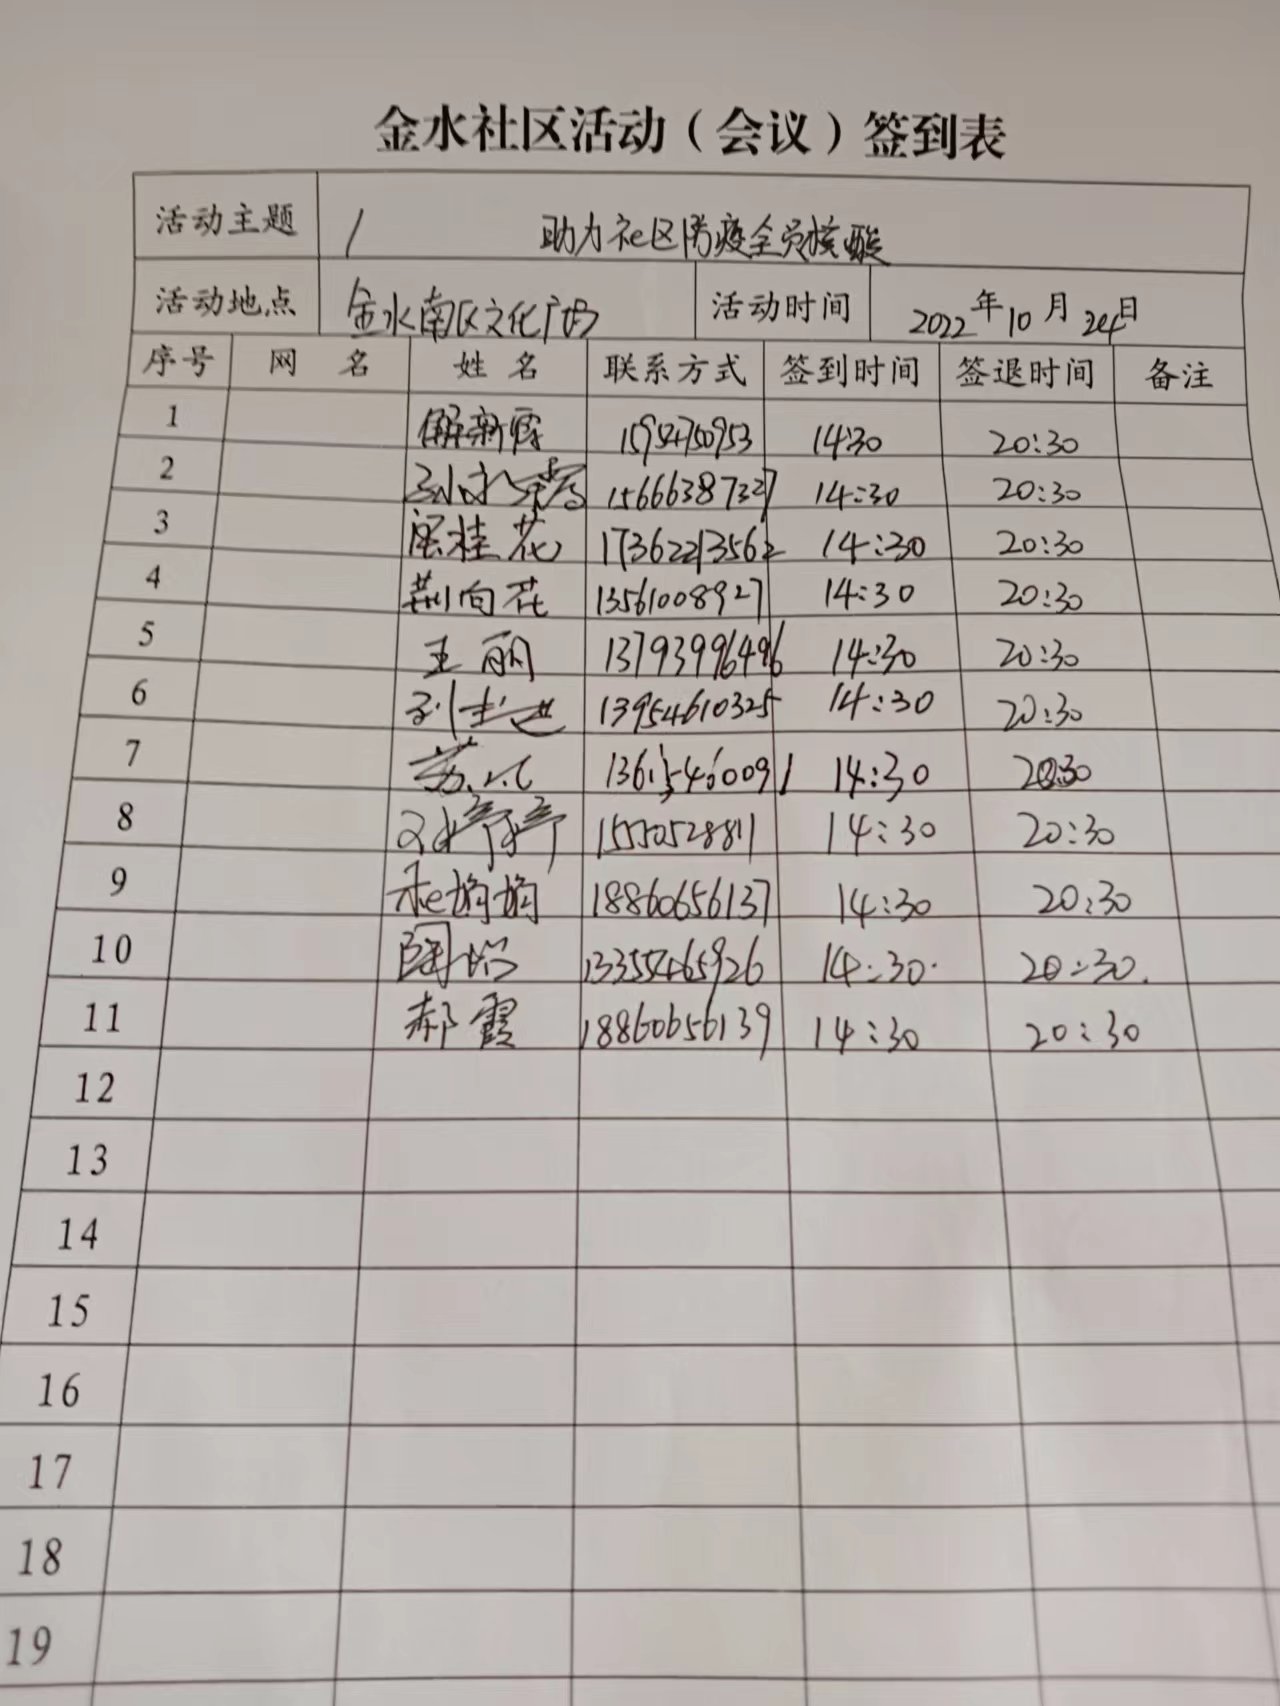 金水社区活动（会议）签到表
活动主题 助力社区防疫全员核酸
活动地点 金水南区文化广场 活动时间 2022年10月24日
序号 网名 姓名 联系方式 签到时间 签退时间 备注
1 解新霞 15954750953 14:30 20:30
2 15666387327 14:30 20:30
3 桂花 17362213562 14:30 20:30
4 荆向花 13561008927 14:30 20:30
5 王丽 13793996496 14:30 20:30
6 13954610325 14:30 20:30
7 14:30 20:30
8 刘婷婷 15550528811 14:30 20:30
9 娟娟 18860656137 14:30 20:30
10 13355465926 14:30 20:30
11 郝霞 18860656139 14:30 20:30
12
13
14
15
16
17
18
19